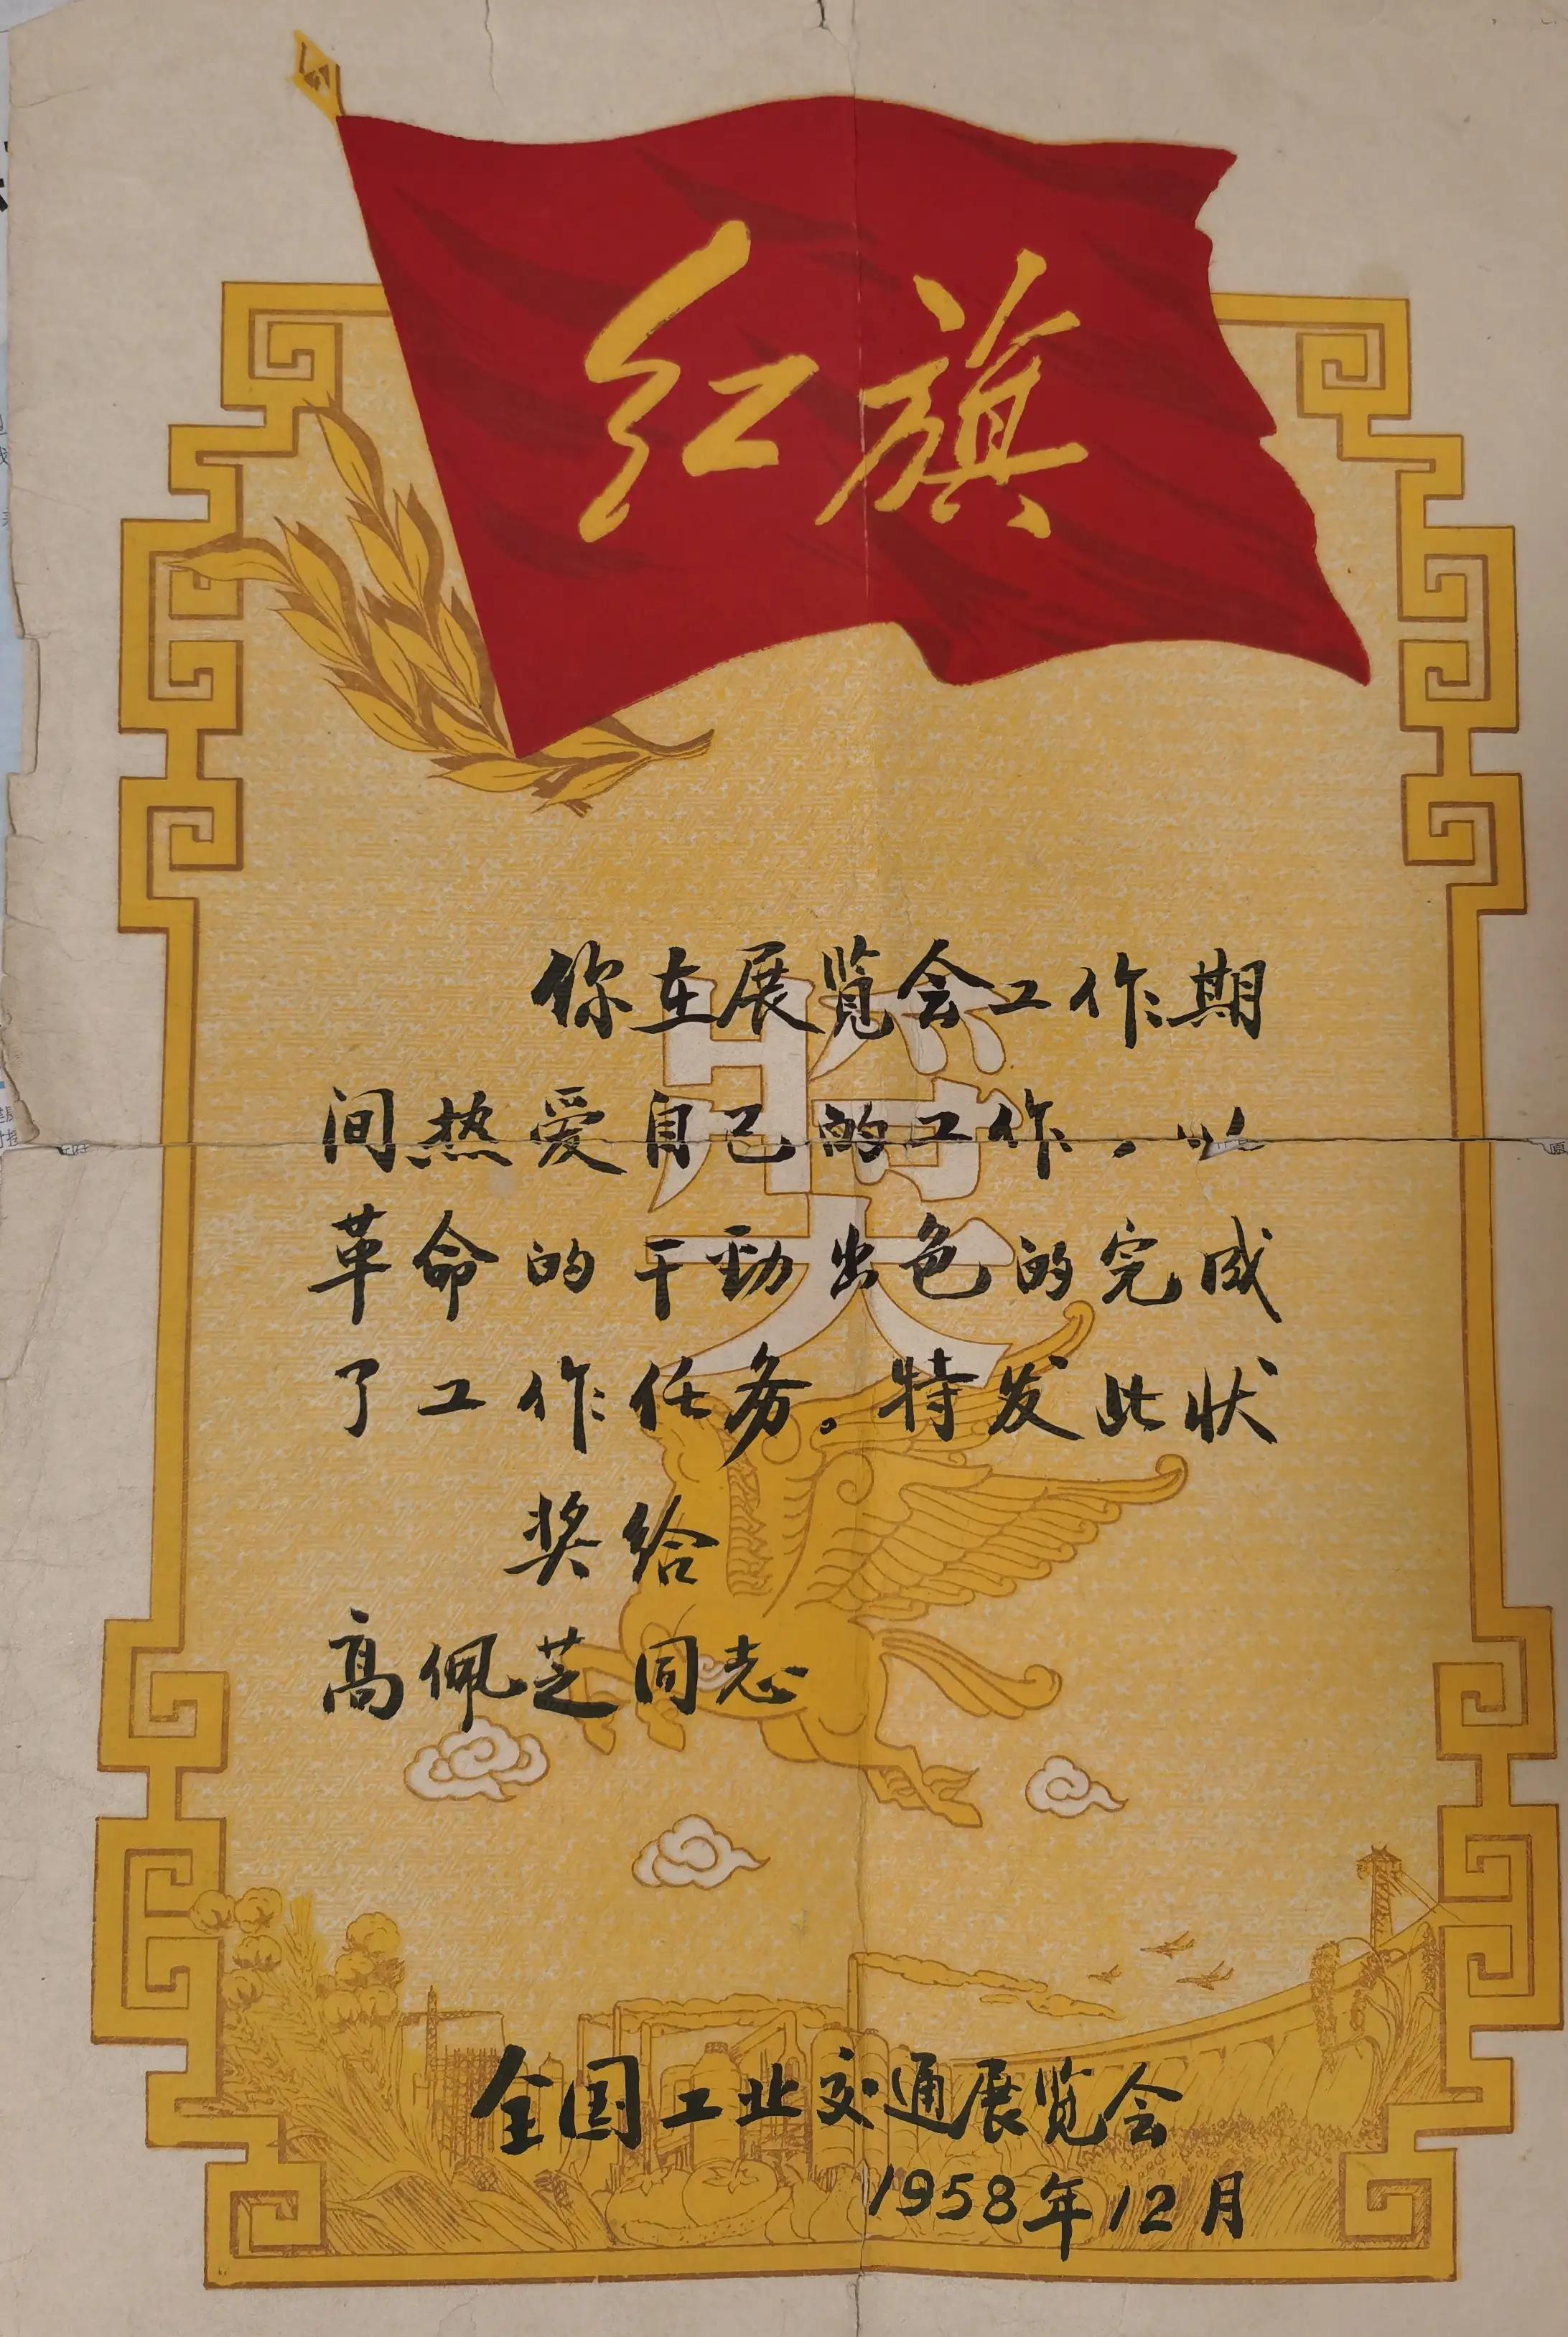 红旗
奖
你在展览会工作期
间热爱自己的工作，以
革命的干勁出色的完成
了工作任务。特发此状
奖给
高佩芝同志
全国工业交通展览会
1958年12月